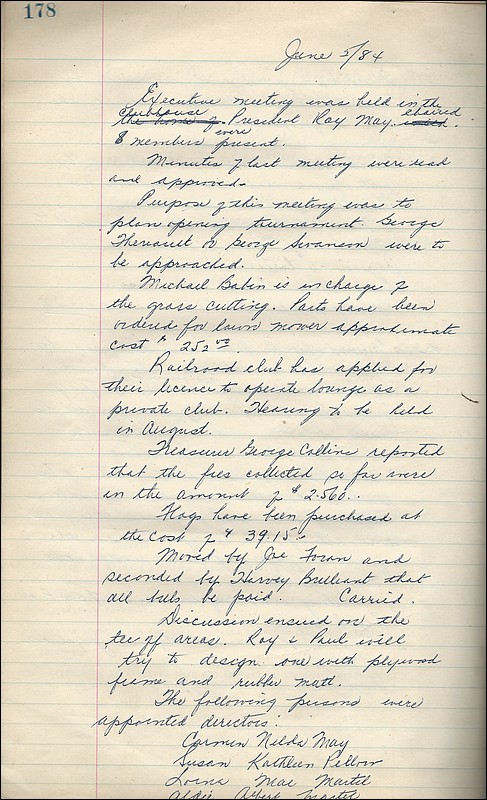 178
June 5/84
Executive meeting was held in the
clubhouse chaired
the home of President Ray May
were
8 members present.
Minutes of last meeting were read
and approved.
Purpose of this meeting was to
plan opening tournament. George
Theriault or George Swanson were to
be approached.
Michael Babin is in charge of
the grass cutting. Parts have been
ordered for lawn mower approximate
cost $ 252.00
Railroad club has applied for
their licence to operate lounge as a
private club. Hearing to be held
in August.
Treasurer George Collins reported
that the fees collected so far were
in the amount of $ 2560..
Flags have been purchased at
the cost of $ 39.15.
Moved by Joe Foran and
seconded by Harvey Brilliant that
all bills be paid. Carried.
Discussion ensued on the
tee off areas. Ray & Paul will
try to design one with plywood
frame and rubber matt.
The following persons were
appointed directors:
Carmen Nilda May
Susan Kathleen Pellow
Lorna Mae Martel
Albert Martel